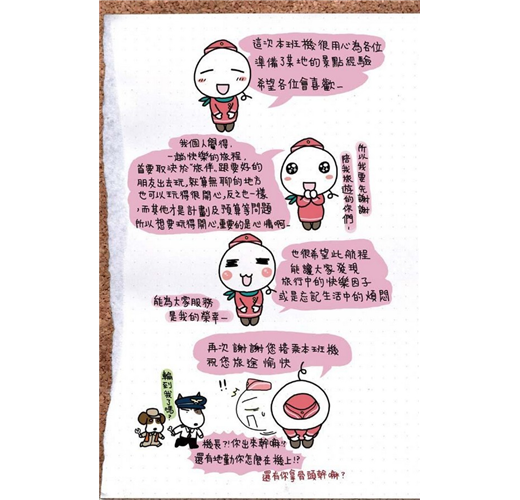 這次本班機很用心為各位
準備了某地的景點經驗
希望各位會喜歡~
我個人覺得，
一趟快樂的旅程，
首要取決於"旅伴"，跟要好的
朋友出去玩，就算無聊的地方
也可以玩得很開心，反之也一樣
，而其他才是計劃及預算等問題
所以想要玩得開心，重要的是心情啊~
所以我要先謝謝
陪我旅遊的你們，
也很希望此航程
能讓大家發現
旅行中的快樂因子
或是忘記生活中的煩悶
能為大家服務
是我的榮幸~
再次謝謝您搭乘本班機
祝您旅途愉快
輪到我了嗎？
!!
機長?!你出來幹嘛!?
還有地勤你怎麼在機上!?
還有你拿骨頭幹嘛?